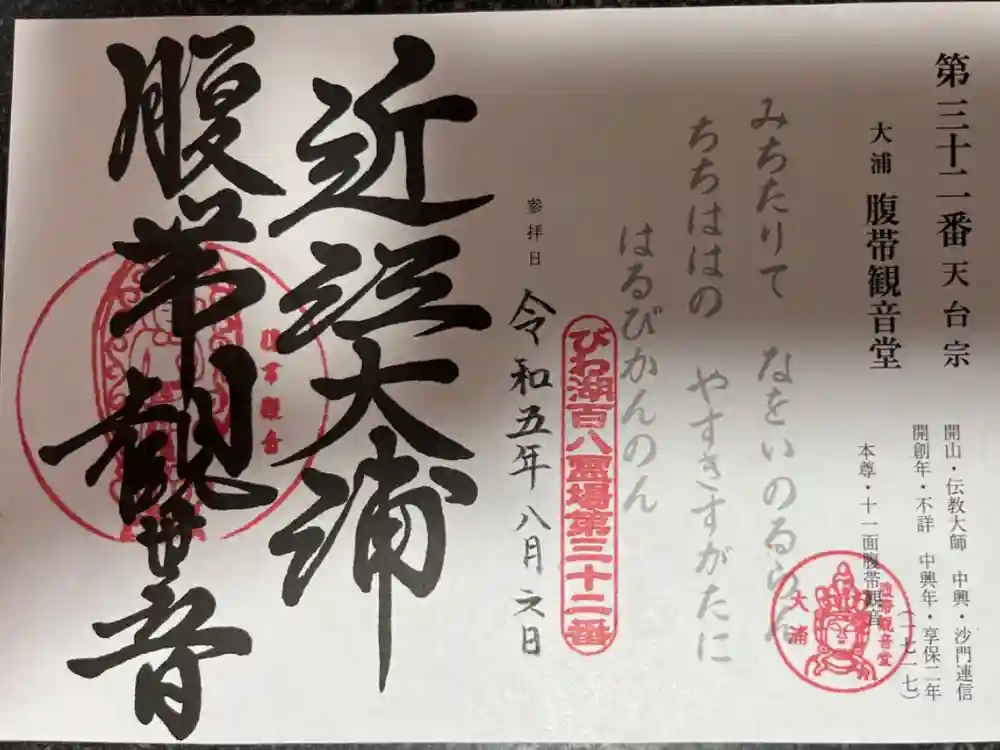 第三十二番 天台宗
大浦 腹帯観音堂
開山・伝教大師 中興・沙門連信
開創年・不詳 中興年・享保二年
(一七一七)
本尊・十一面腹帯観音
大浦
腹帯観音堂
みちたりて なをいのるらん
ちちははの やすきすがたに
はるびかんのん
びわ湖百八霊場第三十二番
参拝日
令和五年八月六日
近江大浦
腹帯観世音